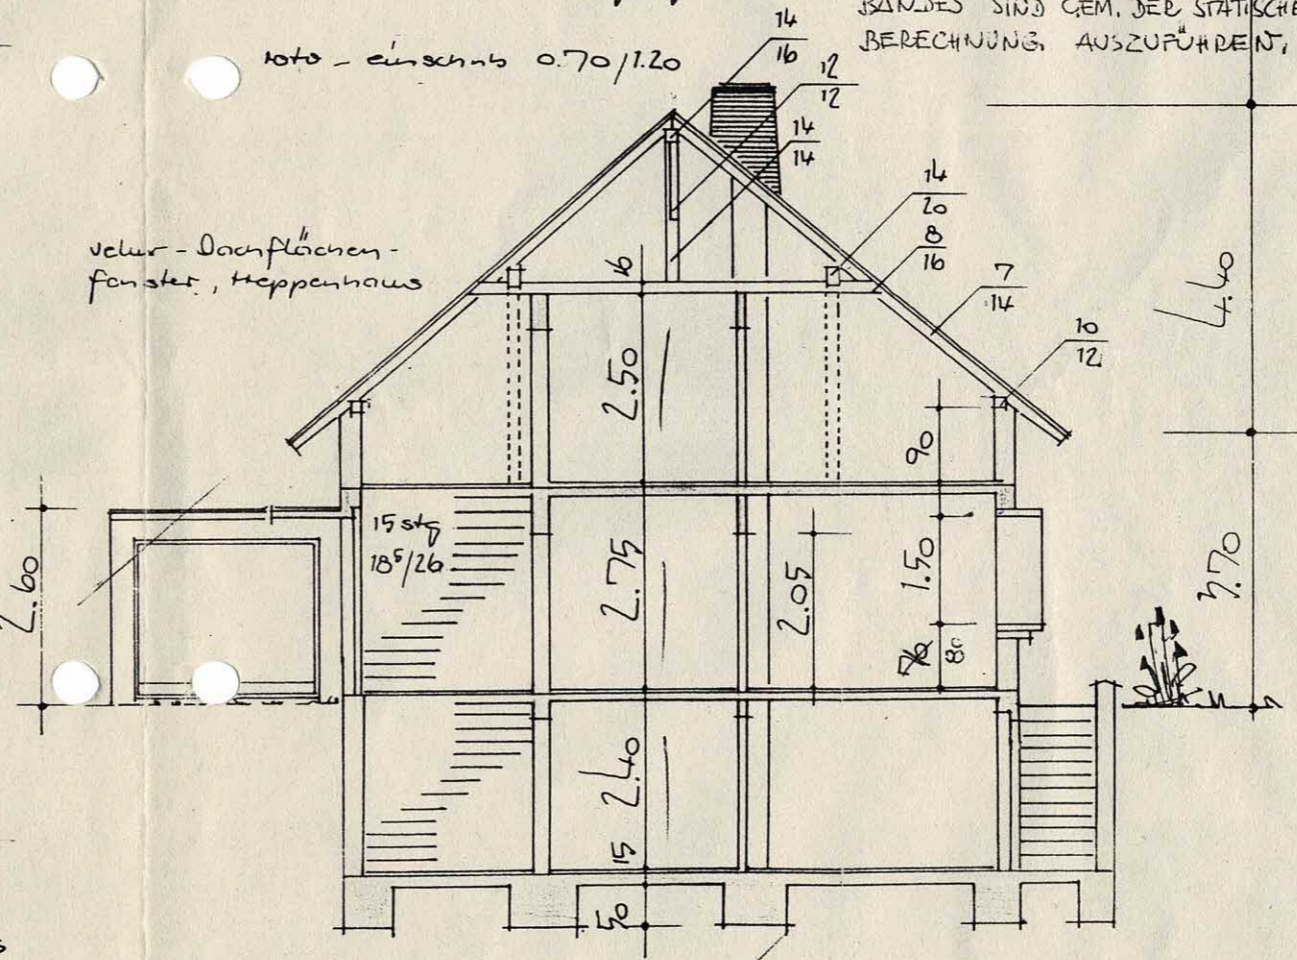 BANDES SIND GEM. DER STATISCHE
BERECHNUNG AUSZUFÜHREN.
roto - einschub 0.70/1.20
14
16
12
12
14
14
14
20
8
16
7
14
10
12
velux - Dachflächen-
fenster, treppenhaus
16
2.50
90
4.40
15 stg
18⁵/26
2.60
2.75
2.05
1.50
3.70
2.40
15
50